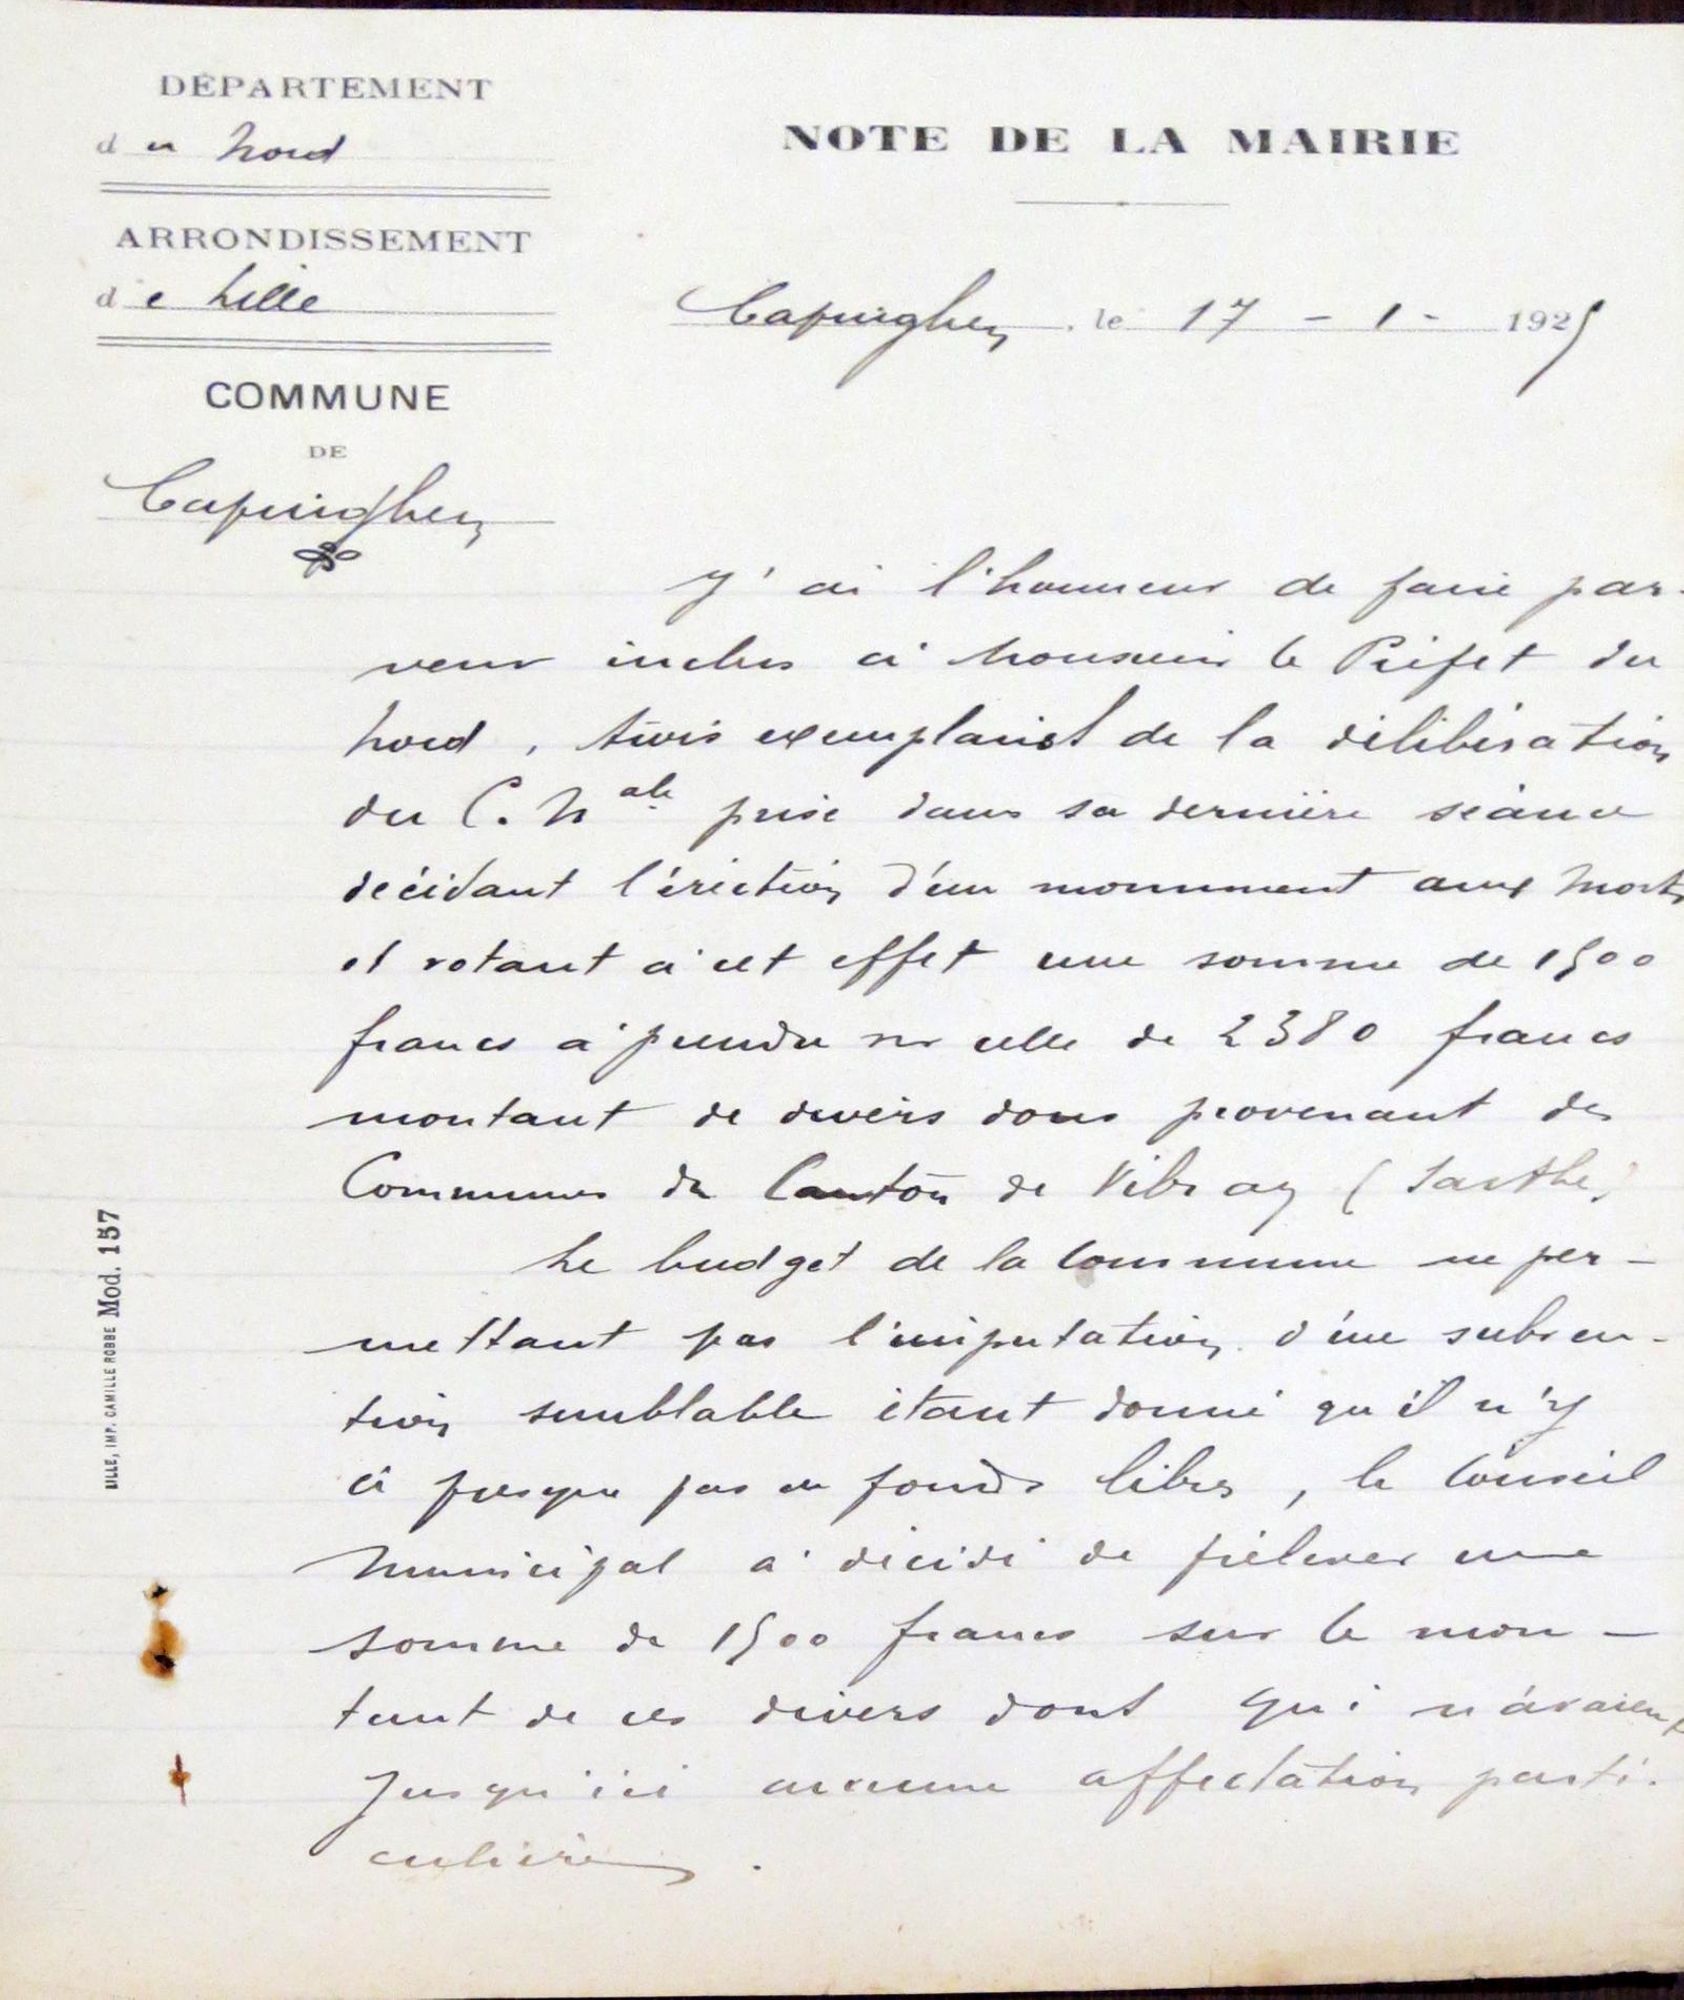 DÉPARTEMENT
du Nord
ARRONDISSEMENT
de Lille
COMMUNE
DE
Capinghem
NOTE DE LA MAIRIE
Capinghem, le 17 - 1 - 1925
J'ai l'honneur de faire par-
venir inclus à Monsieur le Préfet du
Nord, trois exemplaires de la délibération
du C. Mal prise dans sa dernière séance
décidant l'érection d'un monument aux Morts
et votant à cet effet une somme de 1500
francs à prendre sur celle de 2380 francs
montant de divers dons provenant des
Communes du Canton de Vibray (Sarthe)
Le budget de la Commune ne per-
mettant pas l'imputation d'une subven-
tion semblable étant donné qu'il n'y
a presque pas de fonds libres, le Conseil
Municipal a décidé de prélever une
somme de 1500 francs sur le mon-
tant de ces divers dont qui n'avaient
jusqu'ici aucune affectation parti-
culière.
LILLE, IMP. CAMILLE ROBBE Mod. 157